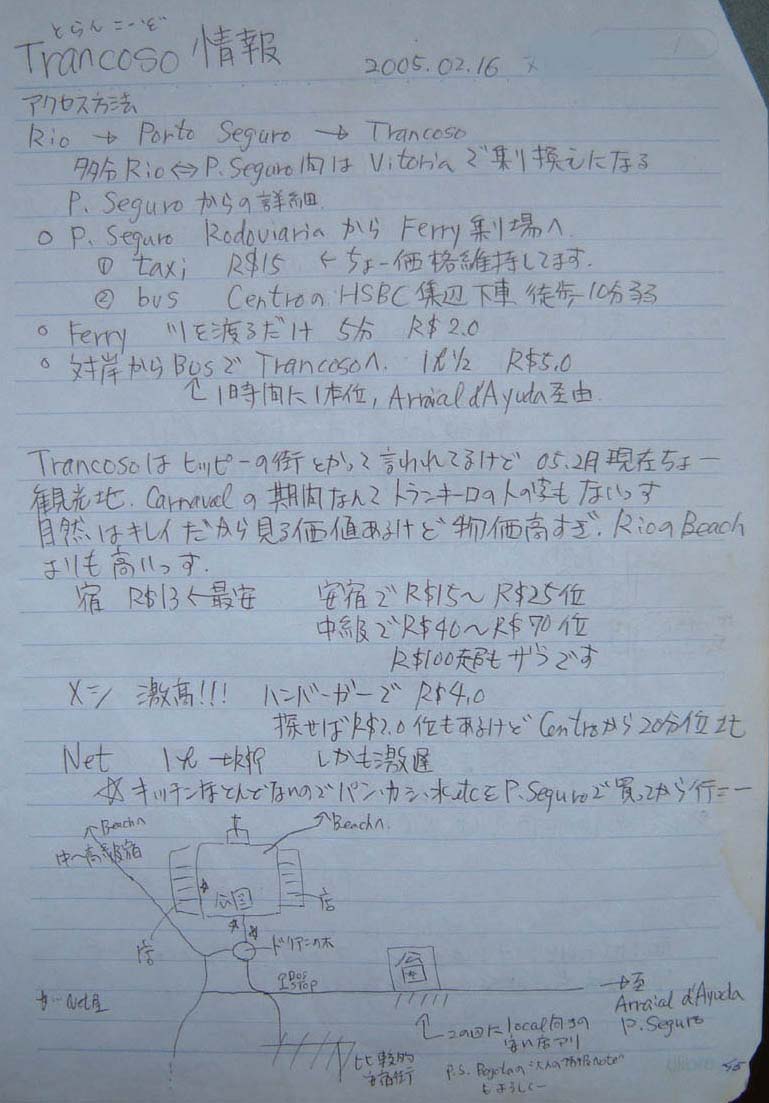 とらんこーぞ
Trancoso 情報 2005.02.16
アクセス方法
Rio → Porto Seguro → Trancoso
多分 Rio ⇔ P.Seguro間は Vitoria で乗り換えになる
P. Seguro からの詳細
○ P. Seguro Rodoviaria から Ferry 乗り場へ
① taxi R$15 ← ちょー価格維持してます.
② bus Centroの HSBC 下車 徒歩10分弱
○ Ferry 川を渡るだけ 5分 R$2.0
○ 対岸から Bus で Trancosoへ. 1h½ R$5.0
↑ 1時間に1本位, Arraial d'Ayuda 経由.
Trancosoは ヒッピーの街 とかって 言われてるけど 05.2月 現在ちょー
観光地. Carnaval の 期間なんて トランキーロの人の字もないっす
自然はキレイだから見る価値あるけど 物価高すぎ. Rioの Beach
よりも 高いっす.
宿 R$13 ← 最安 安宿で R$15〜R$25位
中級で R$40〜R$70 位
R$100超も ザラです
メシ 激高!!! ハンバーガーで R$4.0
探せば R$2.0 位もあるけど Centroから 20分位
Net 1h → R$9 しかも激遅
☆ キッチンほとんどないので パン・カシ・水 etcを P.Seguroで 買ってから行こー
↑Beachへ ↗Beachへ
中〜高級宿
公園
店
店
ドリアンの木
BUS STOP
☆… Net屋
→至
Arraial d'Ayuda
P. Seguro
↑ この回に local向きの
安い店アリ
比較的
安宿街
P.S.
もよろしくー